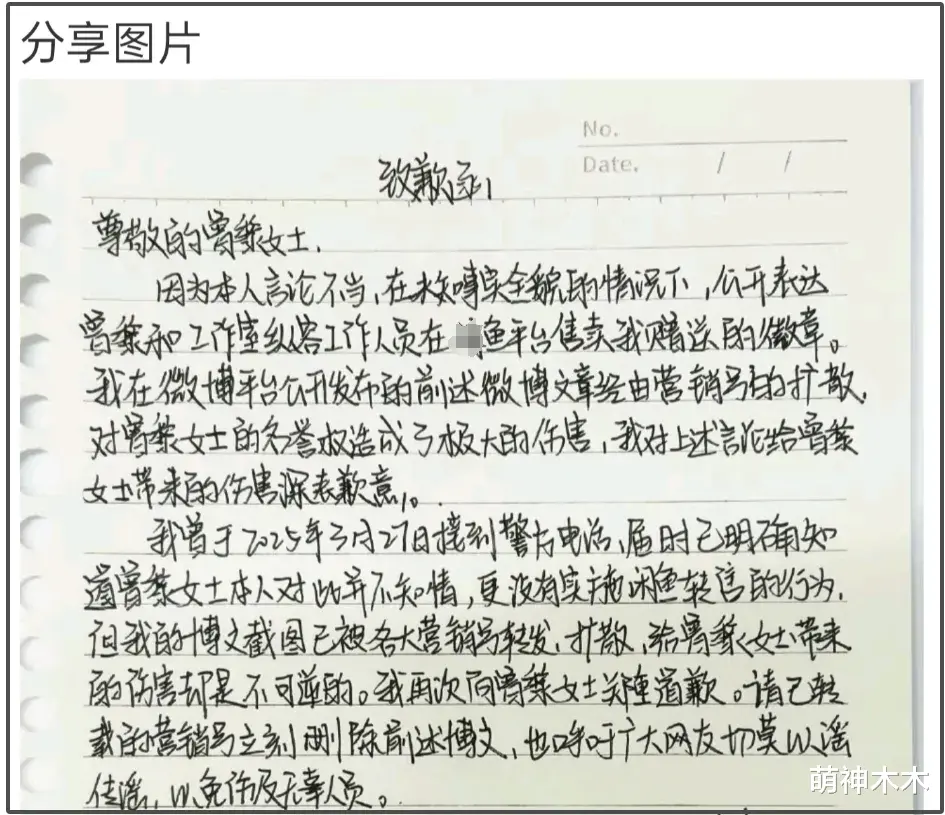 分享图片
No.
Date. / /
致歉函
尊敬的曾黎女士,
因为本人言论不当,在未核实全貌的情况下,公开表达
曾黎和工作室纵容工作人员在 鱼平台售卖我赠送的徽章。
我在微博平台公开发布的前述微博文章经由营销号的扩散,
对曾黎女士的名誉权造成了极大的伤害,我对上述言论给曾黎
女士带来的伤害深表歉意。
我曾于2025年3月27日接到警方电话,届时已明确知
道曾黎女士本人对此并不知情,更没有实施闲鱼转售的行为,
但我的博文截图已被各大营销号转发、扩散,给曾黎女士带来
的伤害却是不可逆的。我再次向曾黎女士郑重道歉。请已转
载的营销号立刻删除前述博文,也呼吁广大网友切莫以谣
传谣,以免伤及无辜人员。
萌神木木